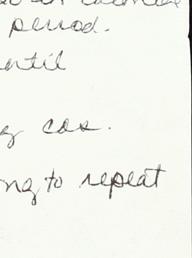 period.
until
g cos.
ng to repeat